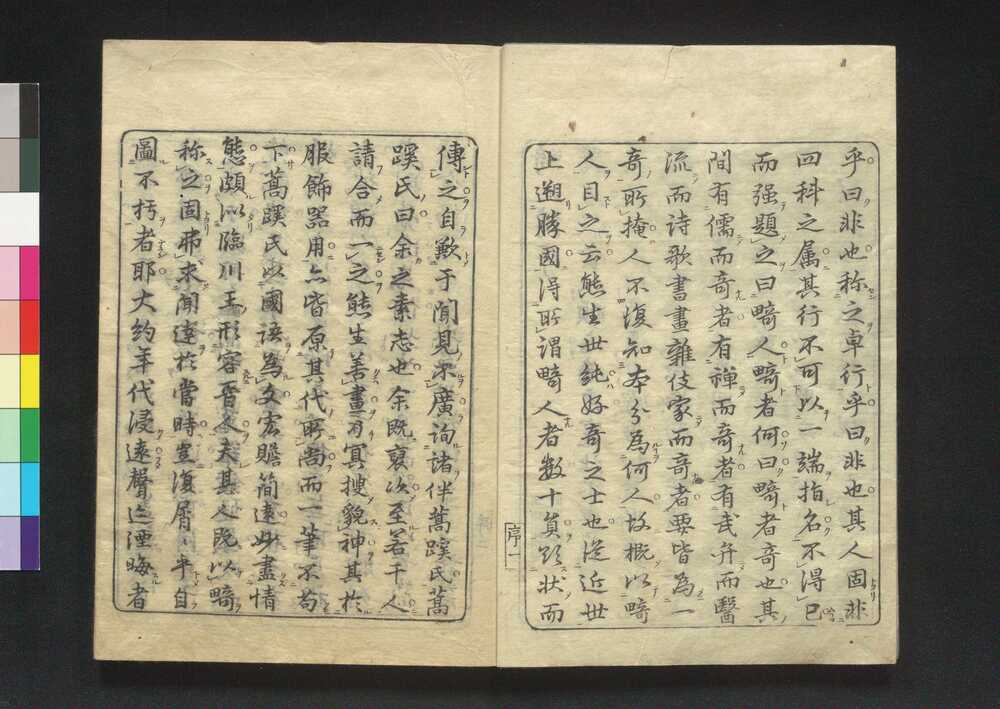 乎曰非也称之卓行乎曰非也其人固非
四科之属其行不可以一端指名不得已
而强題之曰畸人畸者何曰畸者奇也其
間有儒而奇者有禅而奇者有武弁而醫
流而詩歌書畫雜伎家而奇者要皆為一
奇所掩人不復知本分為何人故概以畸
人目之云熊生世純好奇之士也従近世
上遡勝國得所謂畸人者数十負
状而
序一
傳之自歉于聞見不廣詢諸伴蒿蹊氏蒿
蹊氏曰余之素志也余既裒次至若干人
請合而一之熊生善畫乃冥捜貌神其於
服飾器用亦皆原其代所尚而一筆不苟
下蒿蹊氏以國語為文宏贍簡遠
盡情
態頗似臨川王形容晋人夫其人既以畸
称之固弗求聞達於當時豈復屑々乎自
圖不朽者耶大約年代浸遠聲迹湮晦者